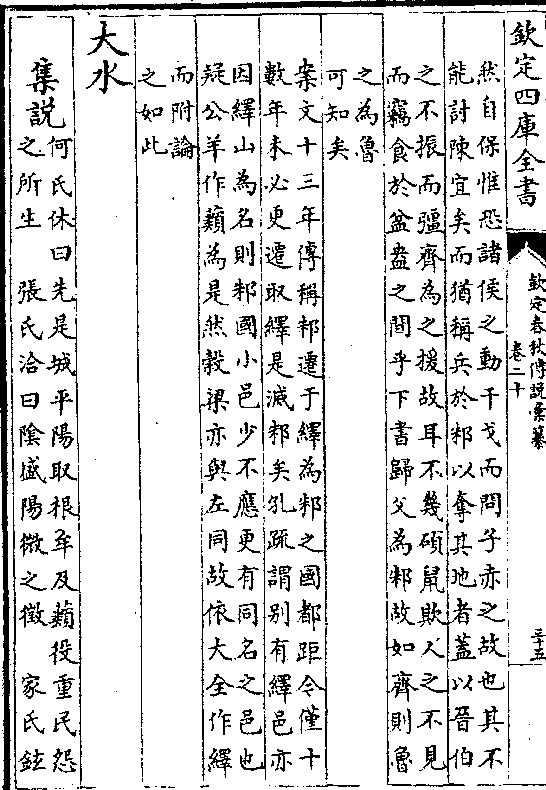 欽定四庫全書
欽定春秋傳説彙纂
卷二十
三十五
然自保惟恐諸侯之動干戈而問子赤之故也其不
能討陳宜矣而猶稱兵於邾以奪其地者蓋以晉伯
之不振而彊齊為之援故耳不幾碩鼠欺人之不見
而竊食於盆盎之間乎下書歸父為邾故如齊則魯
之為魯
可知矣
案文十三年傳稱邾遷于繹為邾之國都距今僅十
數年未必更遷取繹是滅邾矣孔疏謂别有繹邑亦
因繹山為名則邾國小邑少不應更有同名之邑也
疑公羊作蘱為是然榖梁亦與左同故依大全作繹
而附論
之如此
大水
集説
何氏休曰先是城平陽取根牟及蘱役重民怨
之所生 張氏洽曰陰盛陽微之徵 家氏鉉